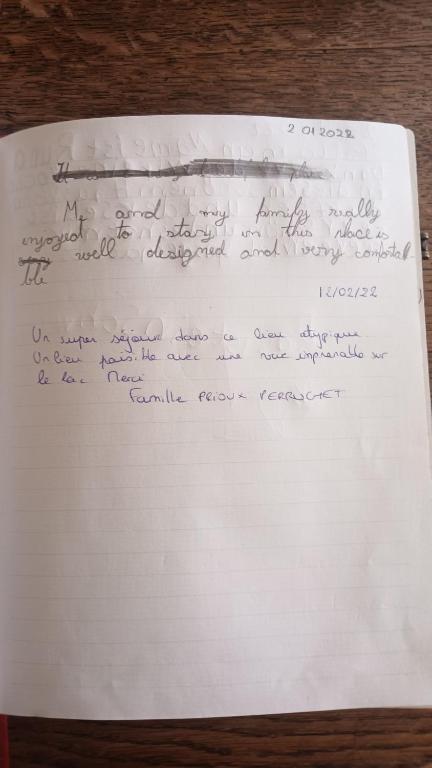 2 01 2022
Me and my family really
injoyed to stary in this place is
well designed and very comfortal-
ble
12/02/22
Un super séjour dans ce lieu atypique
Un lieu paisible avec une vue imprenable sur
le lac Merci
Famille PRIOUX PERRUCHET